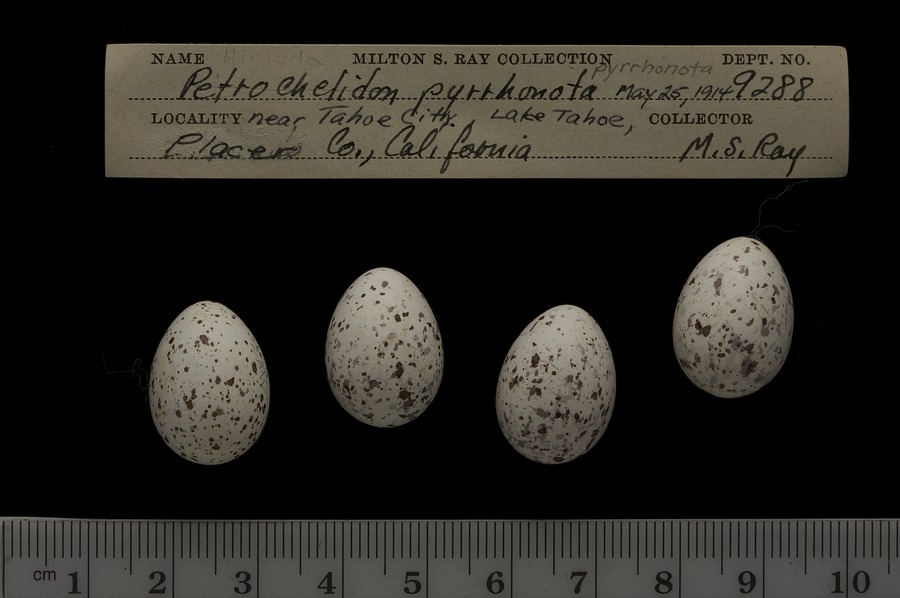 NAME MILTON S. RAY COLLECTION DEPT. NO.
pyrrhonota
Petrochelidon pyrrhonota May 25, 1914 9288
LOCALITY near Tahoe City, Lake Tahoe, COLLECTOR
Placer Co., California M.S. Ray
cm 1 2 3 4 5 6 7 8 9 10